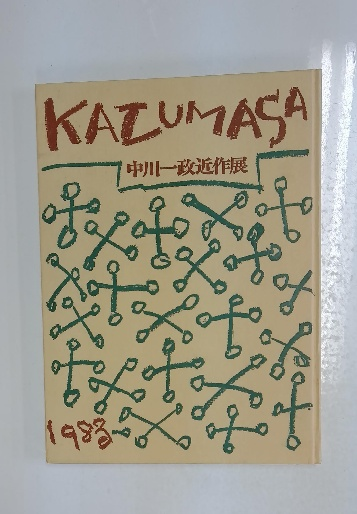 KAZUMASA
中川一政近作展
1983